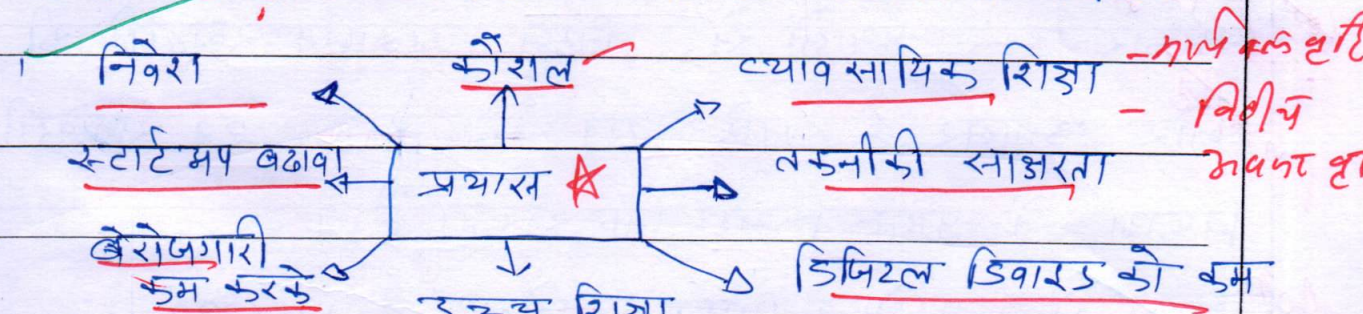 निवेश कौशल व्यावसायिक शिक्षा
स्टार्ट अप बढावा प्रयास तकनीकी साक्षरता
बेरोजगारी
कम करके डिजिटल डिवाइड को कम
उच्च शिक्षा